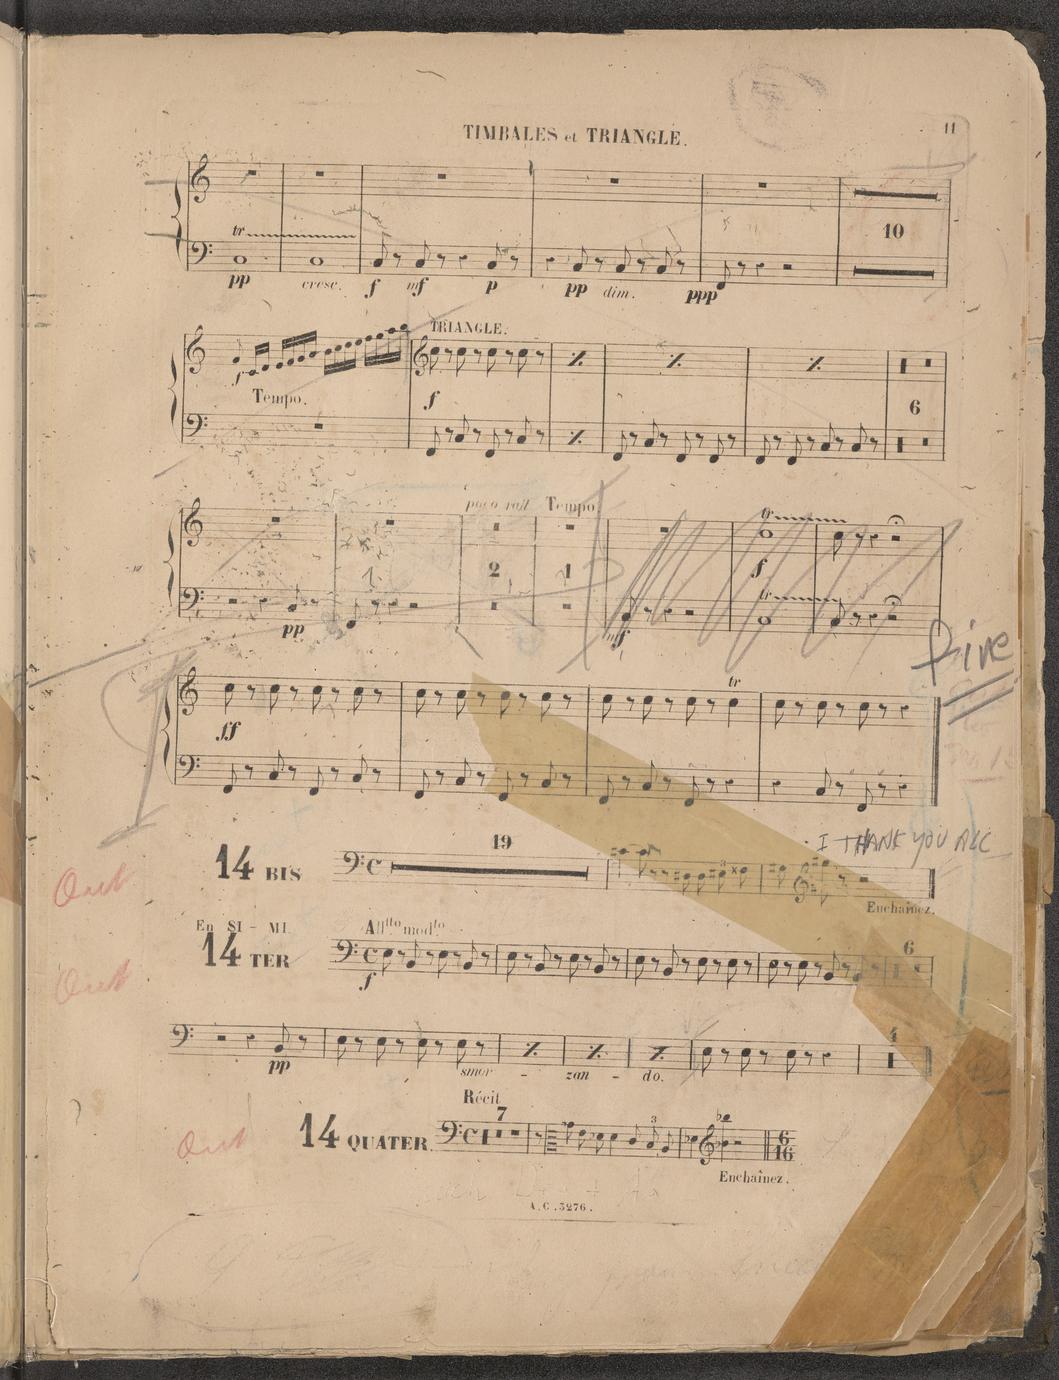 TIMBALES et TRIANGLE.
11
tr
10
pp cresc. f mf p pp dim. ppp
TRIANGLE.
f
Tempo.
f
6
poco rall Tempo
tr
2 1
f
tr
pp
mf
Fine
tr
ff
I THANK YOU ALL
19
14 BIS
Out
Enchaînez.
En SI - MI
Allᵗᵗᵒ modᵗᵒ
6
14 TER
Out
f
4
pp smor - zan - do.
Récit
7
3
14 QUATER.
Out
6
16
Enchaînez.
A.C.5276.